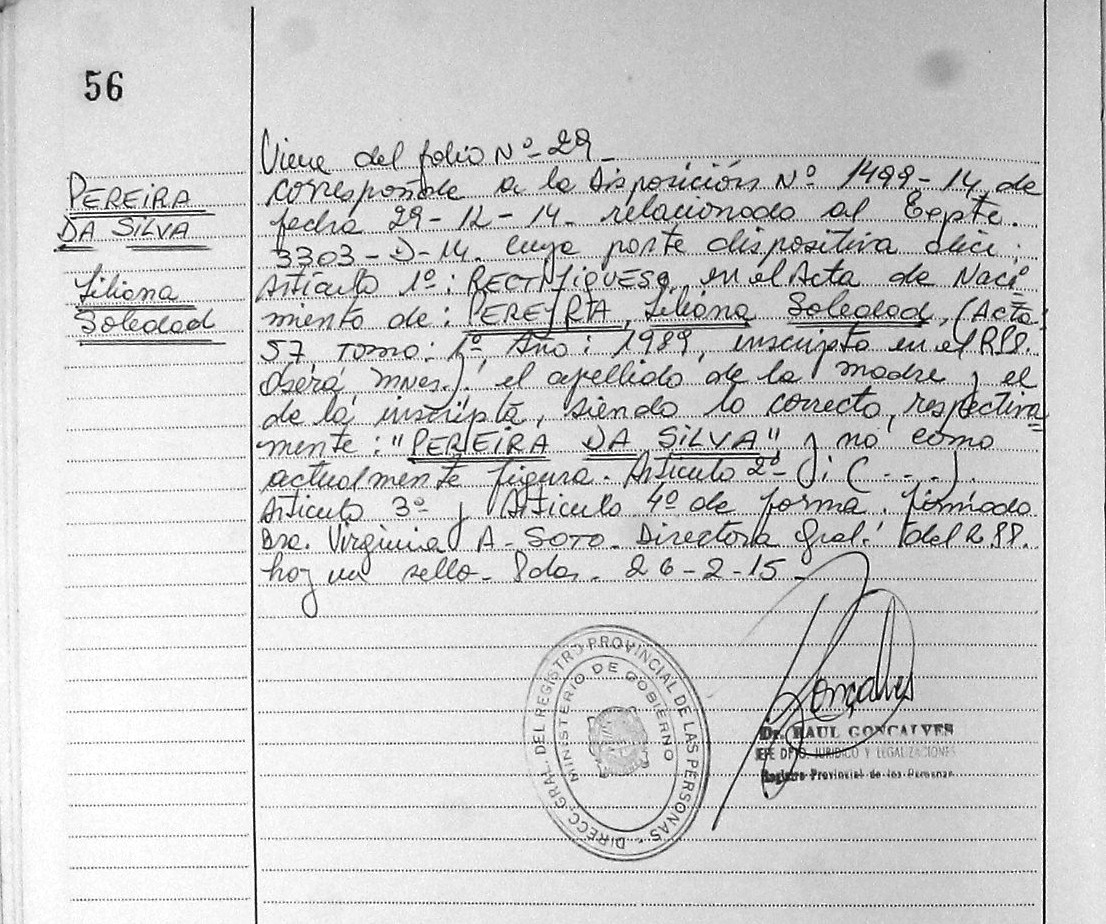 56
PEREIRA
DA SILVA
Liliana
Soledad
Viene del folio Nº- 29
corresponde a la Disposición Nº 1499-14, de
fecha 29-12-14- relacionado al Expte.
3303-D-14. cuya parte dispositiva dice:
Artículo 1º: RECTIFIQUESE, en el Acta de Naci
miento de: PEREYRA, Liliana Soledad, (Acta:
57 Tomo: 1º, Año: 1989, inscripta en el RPP.
Mnes.) el apellido de la madre y el
de la inscripta, siendo lo correcto, respectiva
mente: "PEREIRA DA SILVA" y no como
actualmente figura. Artículo 2º- (...).
Artículo 3º y Artículo 4º de forma. firmado
Virginia A- SOTO- Directora Gral. del RPP.
hay un sello- Pdas. 26-2-15-
DIRECC. GRAL. DEL REGISTRO PROVINCIAL DE LAS PERSONAS
MINISTERIO DE GOBIERNO
Gonçalves
Dr. RAUL GONCALVES
JEFE DPTO. JURIDICO Y LEGALIZACIONES
Registro Provincial de las Personas